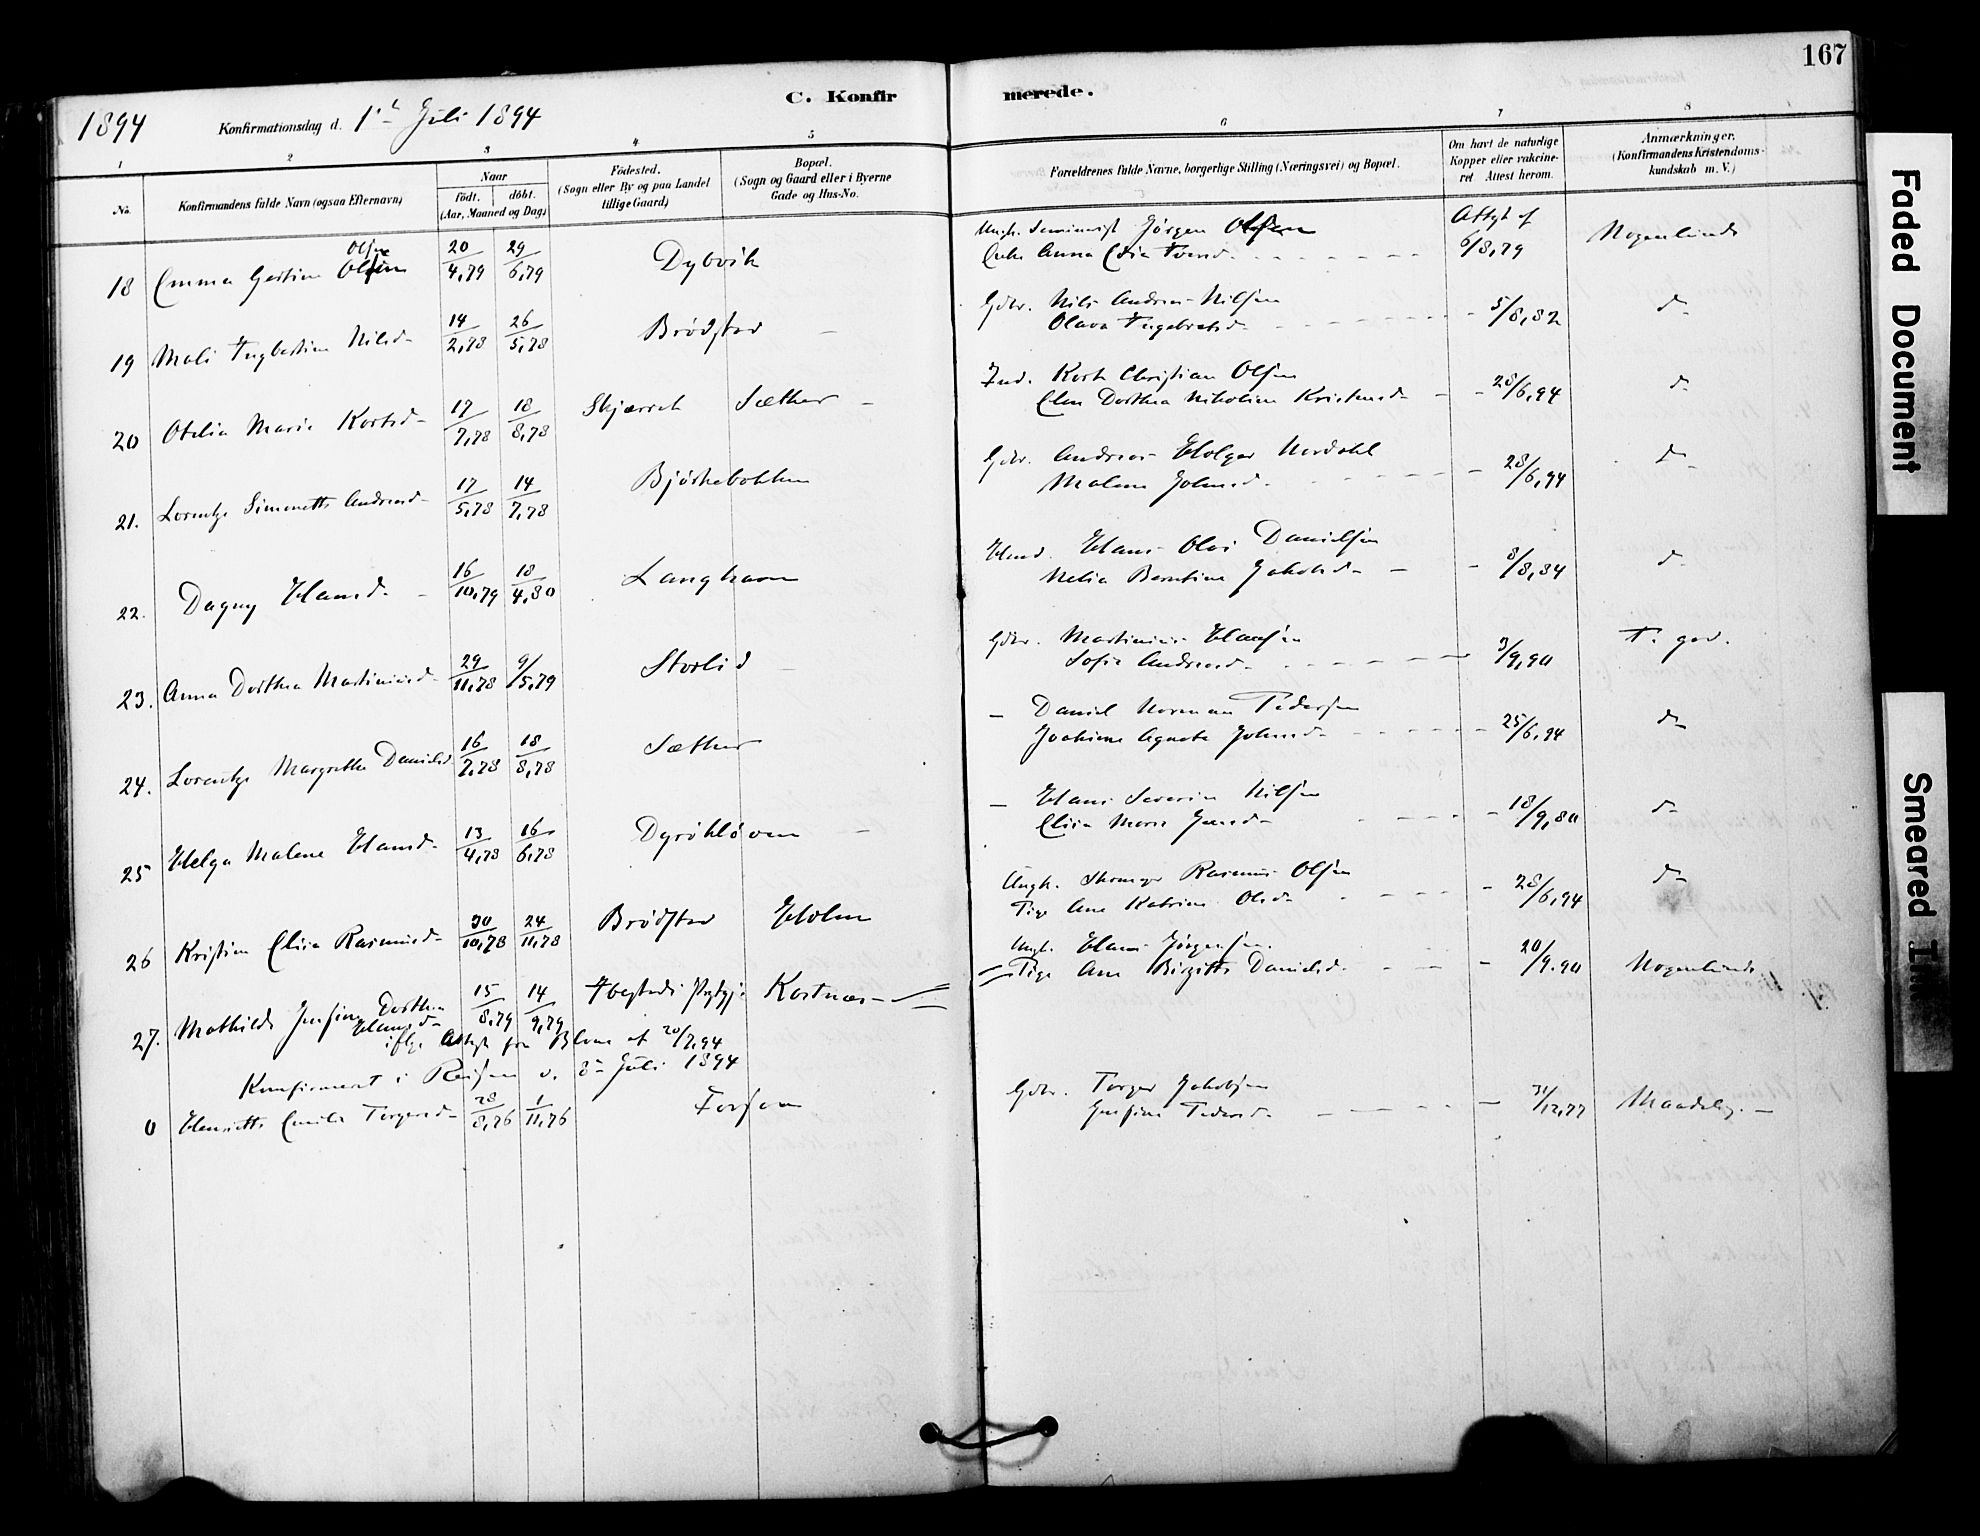 167
C. Konfirmerede.
1894 Konfirmationsdag d. 1ste Juli 1894
1 2 3 4 5 6 7 8
No. Konfirmandens fulde Navn (ogsaa Efternavn) Naar født. døbt. (Aar, Maaned og Dag) Fødested. (Sogn eller By og paa Landet tillige Gaard) Bopæl. (Sogn og Gaard eller i Byerne Gade og Hus-No. Forældrenes fulde Navne, borgerlige Stilling (Næringsvei) og Bopæl. Om havt de naturlige Kopper eller vakcineret Attest herom. Anmærkninger. (Konfirmandens Kristendomskundskab m. V.)
18 Emma Olsen Olsen 20/4,79 29/6,79 Dybvik Ungk. Seminarist Jørgen Olsen
Enke Anna Attest af 6/8,79 Nogenlunde
19 Mali Nilsd 14/2,78 26/5,78 Brødstad — Gdbr. Nils Andreas Nilsen
Olava Ingebretsd - 5/8,82 d-
20 Otelia Marie Kortsd- 17/7,78 18/8,78 Skjærvik Sæther — Ind. Kort Christian Olsen
Elen Dorthea Nikoline Kristensd- - 28/6,94 d-
21. Lorentze Simonette Andreasd- 17/5,78 14/7,78 Bjørkebakken Gdbr. Andreas Holger Nordahl
Malene Johnsd. - 28/6,94 d-
22. Dagny Hansd. - 16/10,79 18/4,80 Langhavn Hmd. Hans Olai Danielsen
Nelia Berntine Jakobsd- - 8/8,84 d-
23. Anna Dorthea Martinusd- 29/11,78 9/5,79 Storlid — Gdbr. Martinus Hansen
Sofie Andreasd. - 3/9,90 T. god.
24. Lorentze Margrethe Danielsd 16/7,78 18/8,78 Sæther — Daniel Norman Pedersen
Joakime Agnete Johnsd- - 25/6,94 d-
25 Helga Malene Hansd- 13/4,78 16/6,78 Dyrøkløven — — Hans Severin Nilsen
Elisa Marie Jensd- - 18/9,80 d-
26 Kristine Elisa Rasmusd- 30/10,78 24/11,78 Brødstad Holm Ungk. Rasmus Olsen
Pige Ane Katrine Olsd- - 28/6,94 d-
27. Mathilde Jensine Dorthea Hansd- 15/8,79 14/9,79 Ibestads Kastnæs — Ungk. Hans Jørgensen.
Pige Ane Birgitte Danielsd. - 20/9.90 Nogenlunde
iflge Attest fra af 20/7,94
Konfirmeret i d. 8de Juli 1894
0 Henriette Emilie Torgersd- 28/8,76 1/11,76 Forsøen Gdbr. Torger Jakobsen
Jensine Pedersd. - 31/12,77 Maadelig. —
Faded Document
Smeared Ink